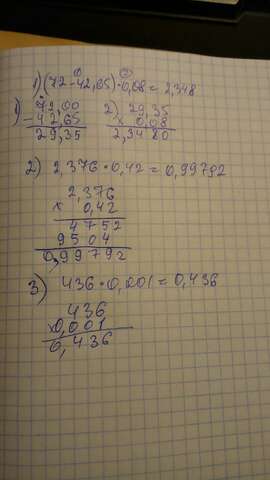 1) (72-42,65)·0,08=2,348
1) 72,00 2) 29,35
-42,65 x 0,08
29,35 2,3480
2) 2,376·0,42=0,99792
2,376
x 0,42
4752
9504
0,99792
3) 436·0,001=0,436
436
x0,001
0,436